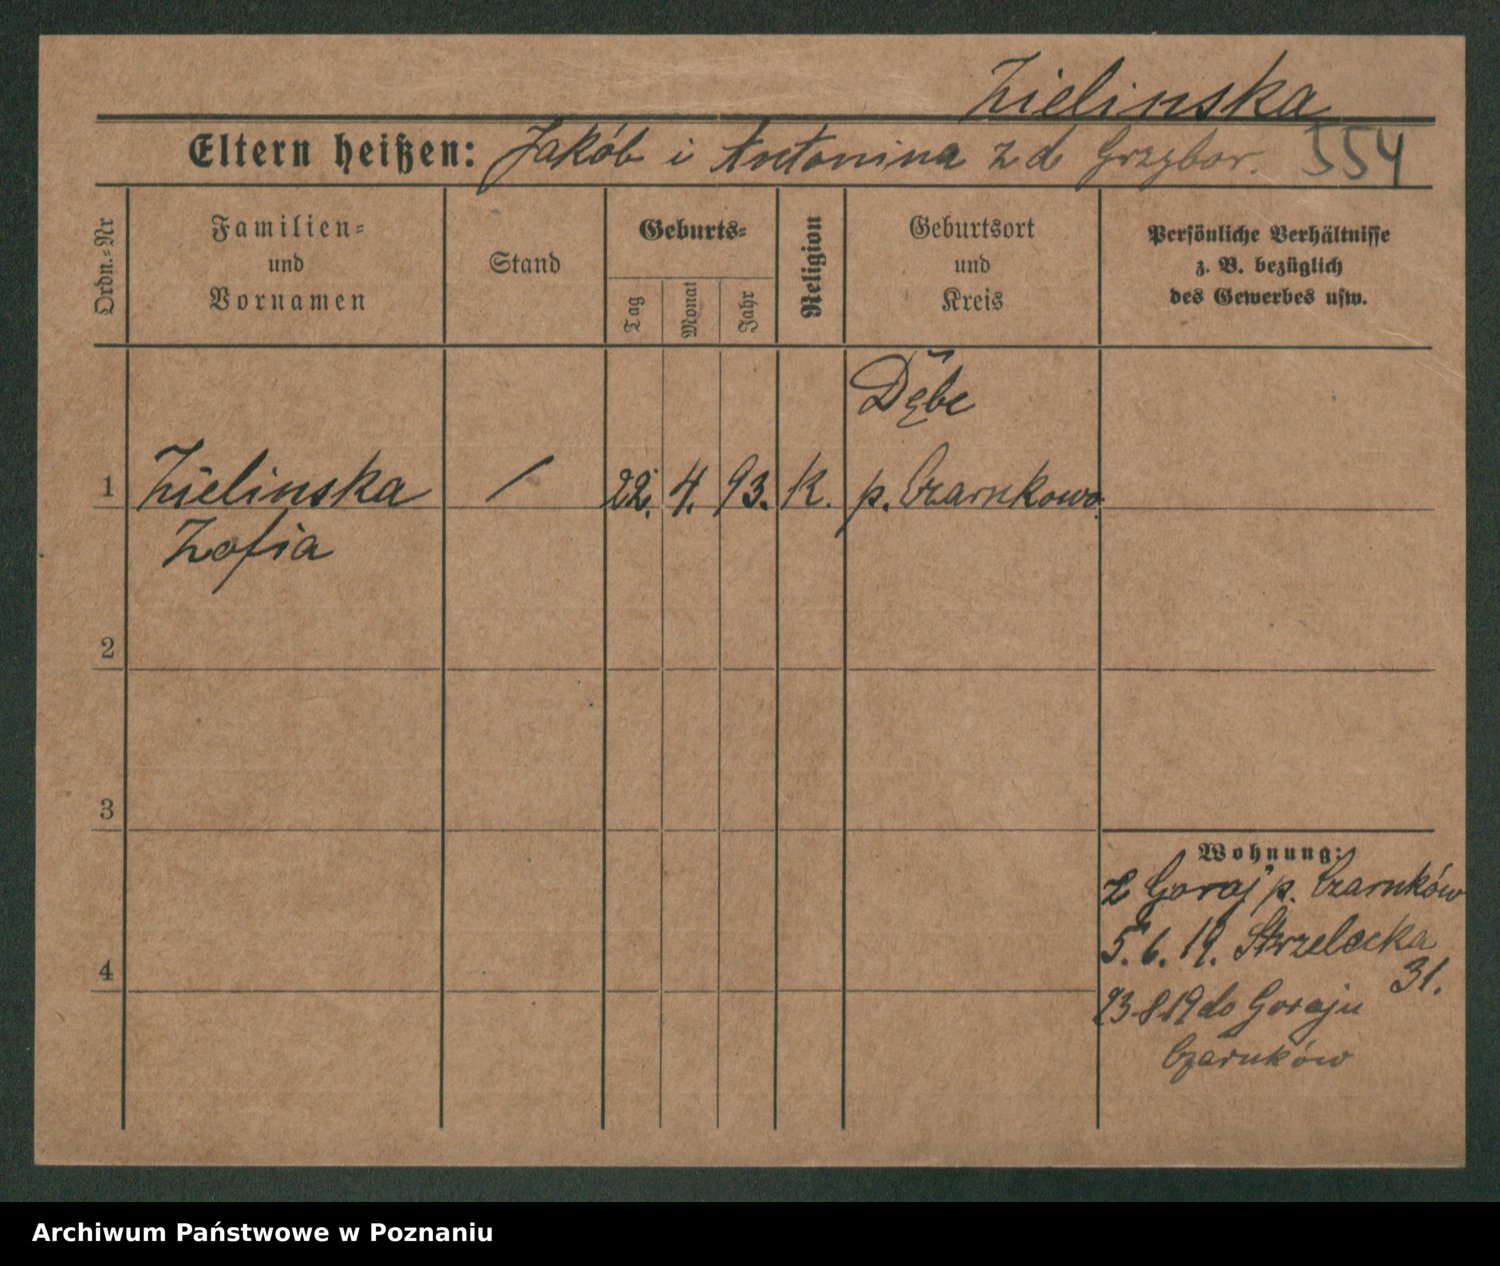 Zielinska
Eltern heißen: Jakób i Antonina z d Grzybor. 354
Ordn.-Nr
Familien-
und
Vornamen
Stand
Geburts-
Tag
Monat
Jahr
Religion
Geburtsort
und
Kreis
Persönliche Verhältnisse
z. B. bezüglich
des Gewerbes usw.
Dębe
1 Zielinska / 22. 4. 93. K. p. Czarnkowo.
Zofia
2
3
Wohnung:
z Goraj p. Czarnków
5. 6. 19. Strzelecka
31.
4
23.8.19 do Goraju
Czarnków
Archiwum Państwowe w Poznaniu